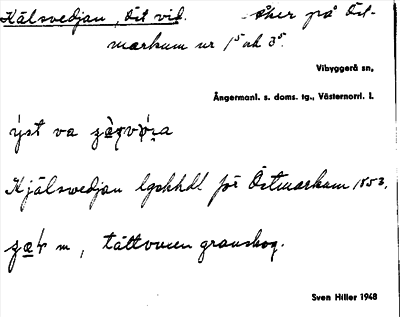 Kälsvedjan, Öst vid. Åker på Öst-
markum nr 1⁵ och 3⁵.
Vibyggerå sn,
Ångermanl. s. doms. tg., Västernorrl. l.
ýst va
Kjälswedjan lgskhdl för Östmarkum 1853.
m, tättvuxen granskog.
Sven Hiller 1948